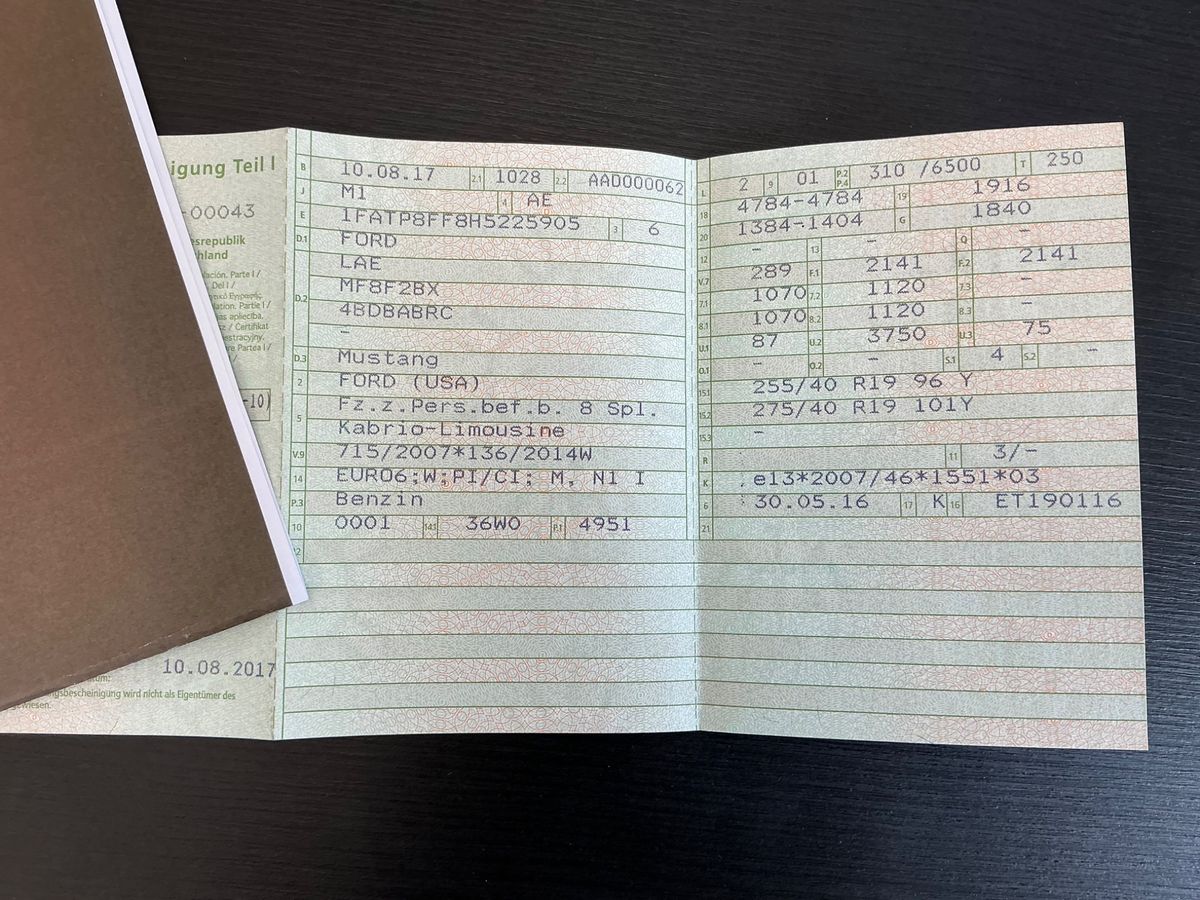 igung Teil I
-00043
esrepublik
hland
Parte I /
Del I /
Partie I /
as apliecība.
/ Certifikat
Partea I /
-10)
10.08.2017
gsbescheinigung wird nicht als Eigentümer des
B 10.08.17 2.1 1028 2.2 AAD000062
J M1 4 AE
E 1FATP8FF8H5225905 3 6
D.1 FORD
LAE
D.2 MF8F2BX
4BDBABRC
-
D.3 Mustang
2 FORD (USA)
5 Fz.z.Pers.bef.b. 8 Spl.
Kabrio-Limousine
V.9 715/2007*136/2014W
14 EURO6;W;PI/CI; M, N1 I
P.3 Benzin
10 0001 14.1 36W0 P.1 4951
22
L 2 9 01 P.2 P.4 310 /6500 T 250
18 4784-4784 19 1916
20 1384-1404 G 1840
12 - 13 - Q -
V.7 289 F.1 2141 F.2 2141
7.1 1070 7.2 1120 7.3 -
8.1 1070 8.2 1120 8.3 -
U.1 87 U.2 3750 U.3 75
O.1 - O.2 - S.1 4 S.2 -
15.1 255/40 R19 96 Y
15.2 275/40 R19 101Y
15.3 -
R 11 3/-
K e13*2007/46*1551*03
6 30.05.16 17 K 16 ET190116
21